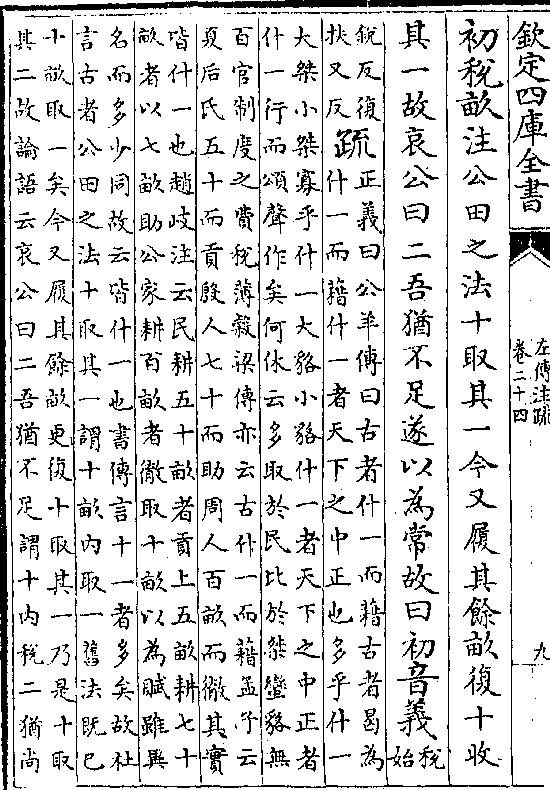 欽定四庫全書
左傳注疏
卷二十四
九
初稅畝注公田之法十取其一今又履其餘畝復十收
其一故哀公曰二吾猶不足遂以為常故曰初音義稅始
銳反復扶又反疏正義曰公羊傳曰古者什一而藉古者曷為
什一而藉什一者天下之中正也多乎什一
大桀小桀寡乎什一大貉小貉什一者天下之中正者
什一行而頌聲作矣何休云多取於民比於桀蠻貉無
百官制度之費稅薄穀梁傳亦云古什一而藉孟子云
夏后氏五十而貢殷人七十而助周人百畝而徹其實
皆什一也趙岐注云民耕五十畝者貢上五畝耕七十
畝者以七畝助公家耕百畝者徹取十畝以為賦雖異
名而多少同故云皆什一也書傳言十一者多矣故杜
言古者公田之法十取其一謂十畝內取一舊法既已
十畝取一矣今又履其餘畝更復十取其一乃是十取
其二故論語云哀公曰二吾猶不足謂十內稅二猶尚